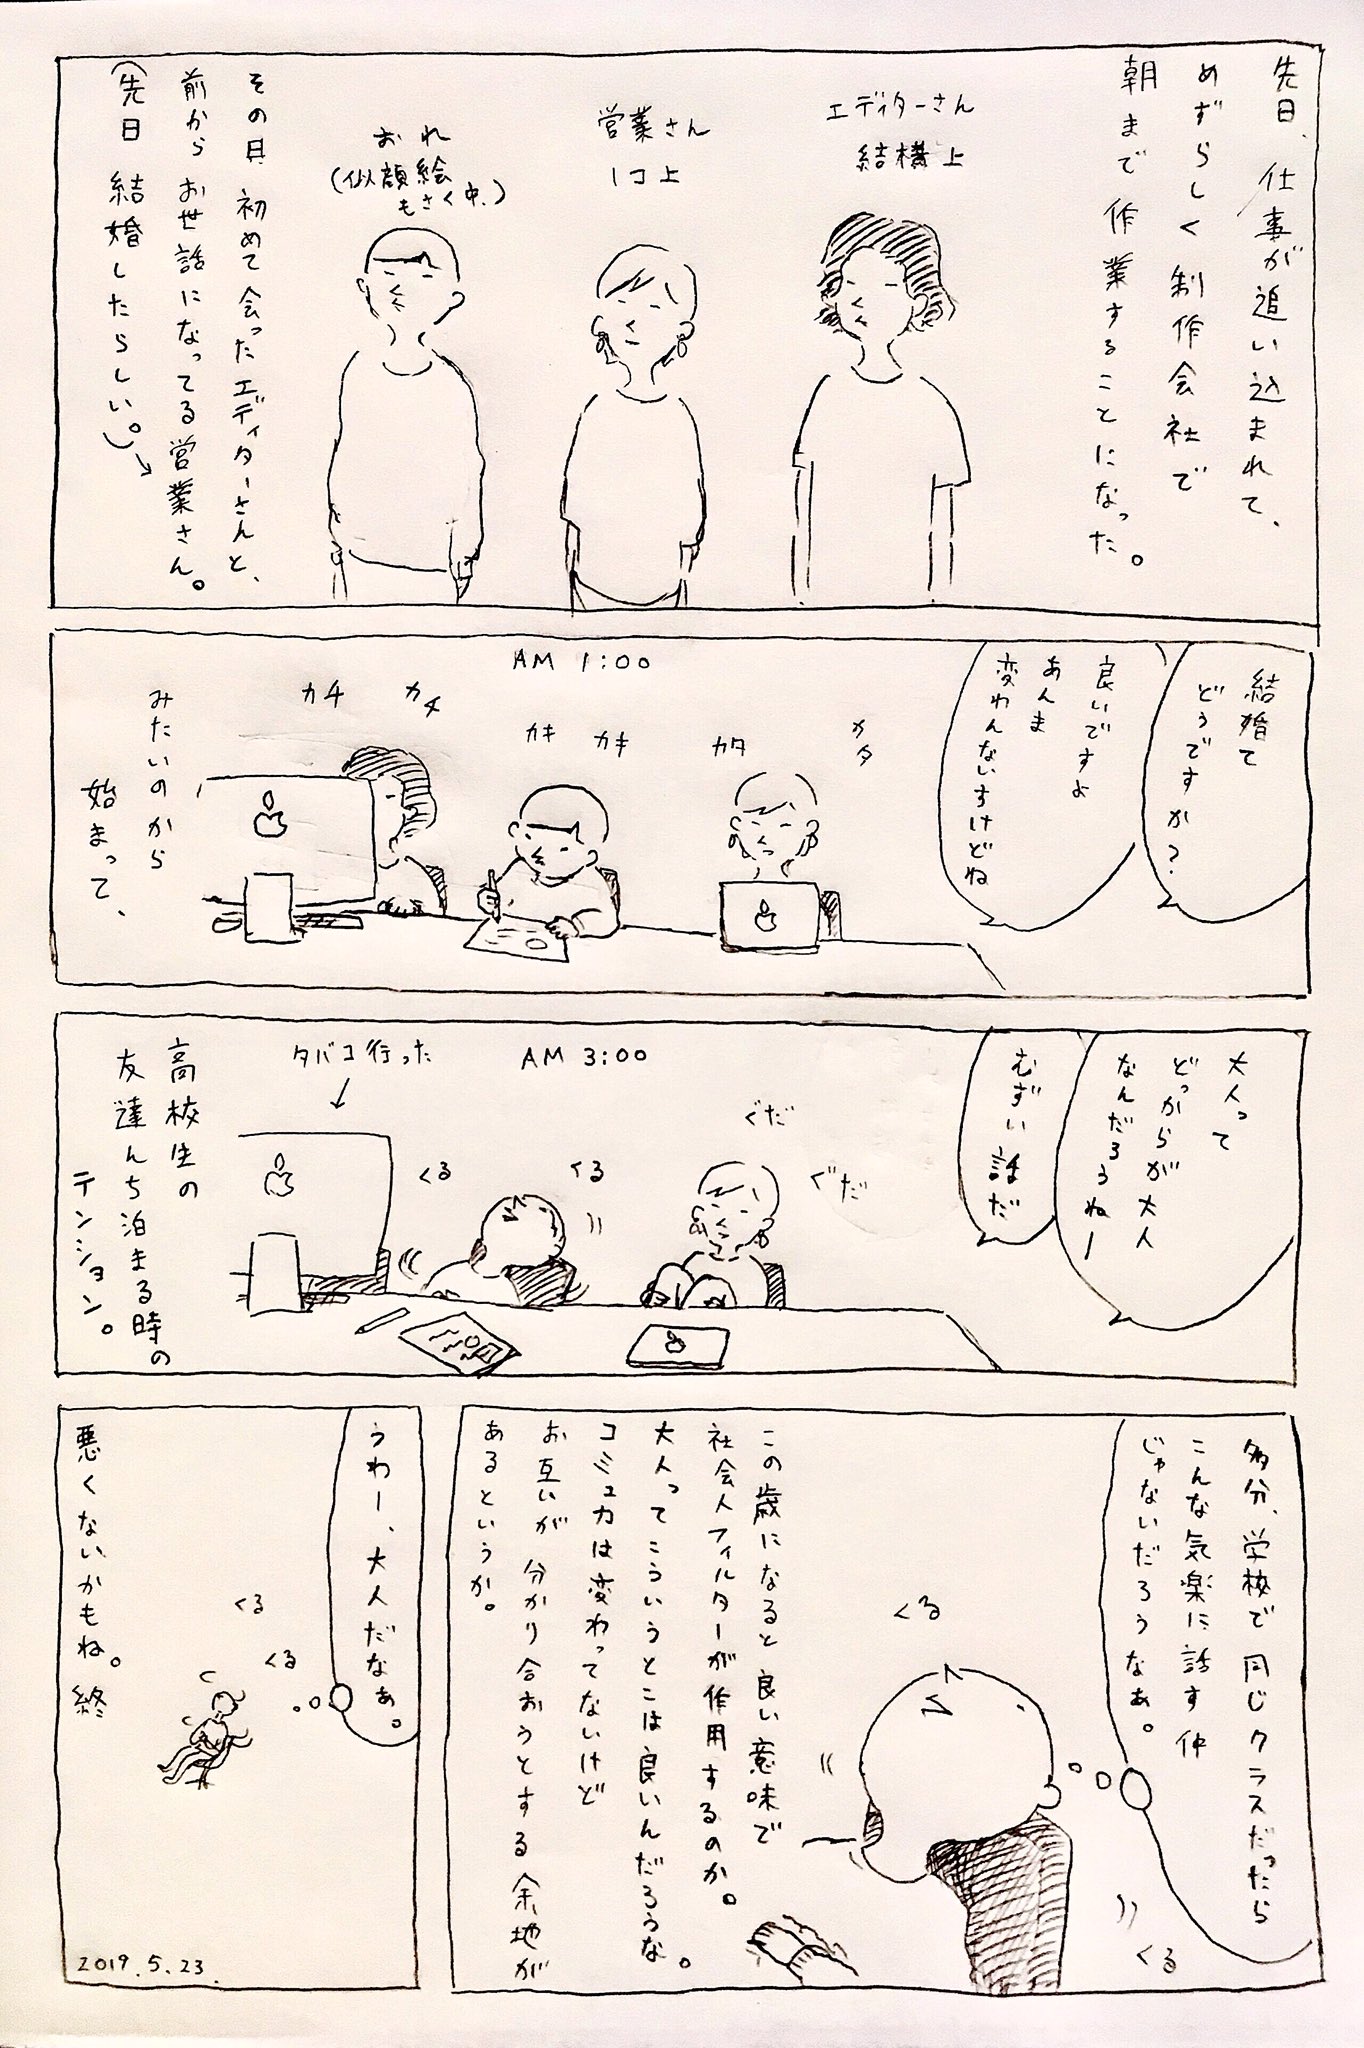 先日、仕事が追い込まれて、
めずらしく制作会社で
朝まで作業することになった。
エディターさん
結構上
営業さん
1コ上
おれ
(似顔絵
もさく中、)
その日初めて会ったエディターさんと、
前からお世話になってる営業さん。
(先日結婚したらしい。)→
AM 1:00
結婚て
どうですか?
良いですよ
あんま
変わんないすけどね
カタ
カタ
カキ
カキ
カチ
カチ
みたいのから
始まって、
AM 3:00
大人って
どっからが大人
なんだろうねー
むずい話だ
ぐだ
ぐだ
くる
くる
タバコ行った
高校生の
友達んち泊まる時の
テンション。
多分、学校で同じクラスだったら
こんな気楽に話す仲
じゃないだろうなぁ。
くる
くる
この歳になると良い意味で
社会人フィルターが作用するのか。
大人ってこういうとこは良いんだろうな。
コミュ力は変わってないけど
お互いが分かり合おうとする余地が
あるというか。
うわー、大人だなぁ。
くる
くる
悪くないかもね。終
2019.5.23.